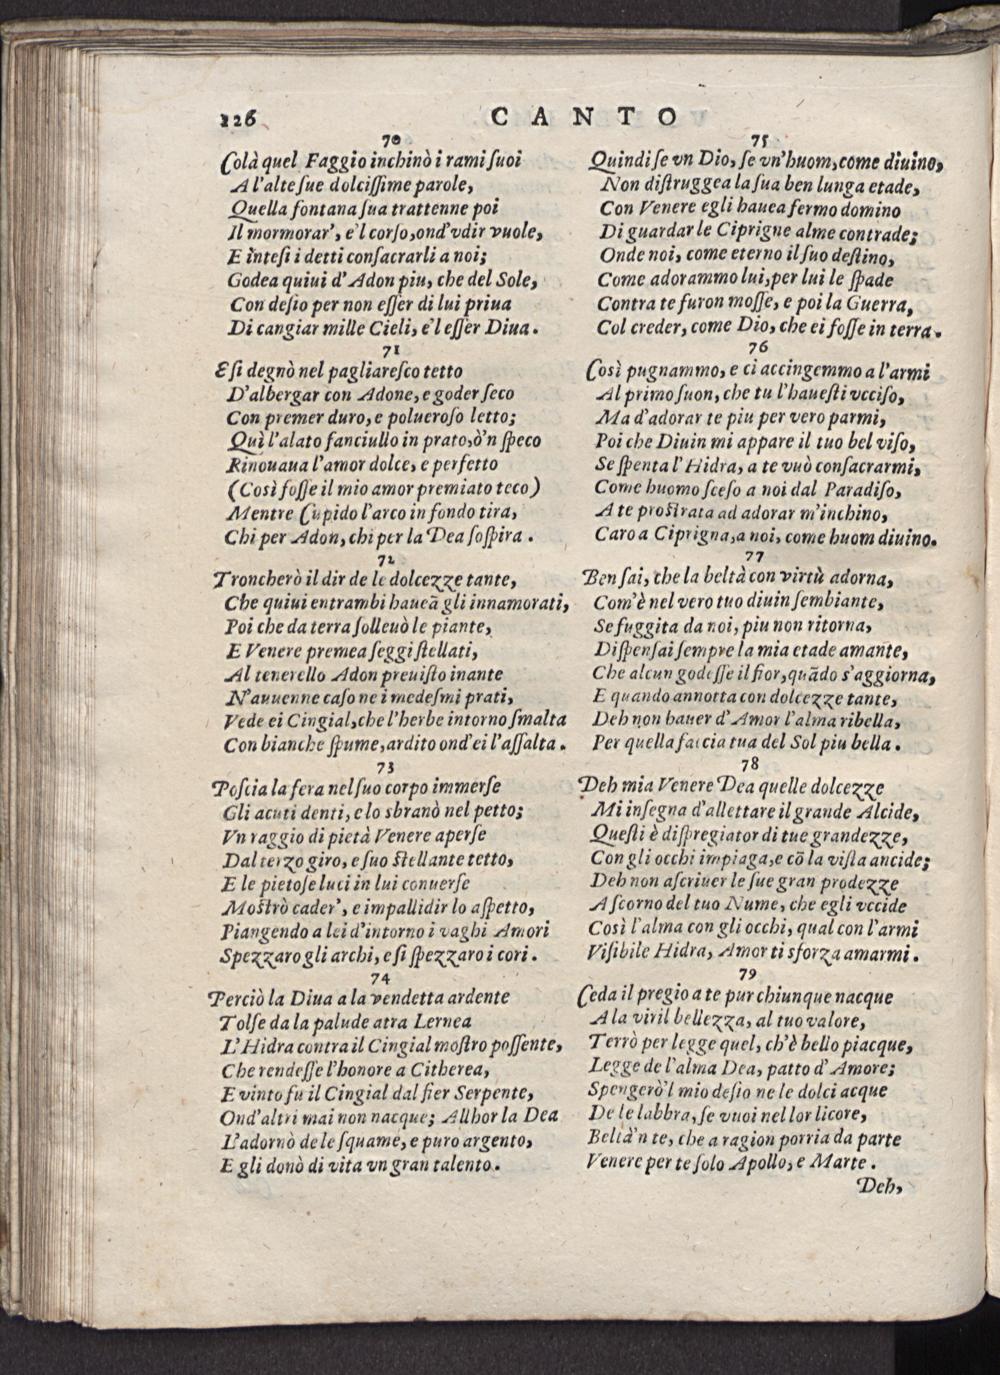 126
CANTO
70
Colà quel Faggio inchinò i rami ſuoi
A l'alte ſue dolciſſime parole,
Quella fontana ſua trattenne poi
Il mormorar', e'l corſo, ond'vdir vuole,
E inteſi i detti conſacrarli a noi;
Godea quiui d'Adon piu, che del Sole,
Con deſio per non eſſer di lui priua
Di cangiar mille Cieli, e'l eſſer Diua.
71
E ſi degnò nel pagliareſco tetto
D'albergar con Adone, e goder ſeco
Con premer duro, e polueroſo letto;
Quì l'alato fanciullo in prato, ò'n ſpeco
Rinouaua l'amor dolce, e perfetto
(Così foſſe il mio amor premiato teco)
Mentre Cupido l'arco in fondo tira,
Chi per Adon, chi per la Dea ſoſpira.
72
Troncherò il dir de le dolcezze tante,
Che quiui entrambi haueã gli innamorati,
Poi che da terra ſolleuò le piante,
E Venere premea ſeggi ſtellati,
Al tenerello Adon preuiſto inante
N'auuenne caſo ne i medeſmi prati,
Vede ei Cingial, che l'herbe intorno ſmalta
Con bianche ſpume, ardito ond'ei l'aſſalta.
73
Poſcia la fera nel ſuo corpo immerſe
Gli acuti denti, e lo sbranò nel petto;
Vn raggio di pietà Venere aperſe
Dal terzo giro, e ſuo ſtellante tetto,
E le pietoſe luci in lui conuerſe
Moſtrò cader', e impallidir lo aſpetto,
Piangendo a lei d'intorno i vaghi Amori
Spezzaro gli archi, e ſi ſpezzaro i cori.
74
Perciò la Diua a la vendetta ardente
Tolſe da la palude atra Lernea
L'Hidra contra il Cingial moſtro poſſente,
Che rendeſſe l'honore a Citherea,
E vinto fu il Cingial dal fier Serpente,
Ond'altri mai non nacque; Allhor la Dea
L'adornò de le ſquame, e puro argento,
E gli donò di vita vn gran talento.
75
Quindi ſe vn Dio, ſe vn'huom, come diuino,
Non diſtruggea la ſua ben lunga etade,
Con Venere egli hauea fermo domino
Di guardar le Ciprigne alme contrade;
Onde noi, come eterno il ſuo deſtino,
Come adorammo lui, per lui le ſpade
Contra te furon moſſe, e poi la Guerra,
Col creder, come Dio, che ei foſſe in terra.
76
Così pugnammo, e ci accingemmo a l'armi
Al primo ſuon, che tu l'haueſti vcciſo,
Ma d'adorar te piu per vero parmi,
Poi che Diuin mi appare il tuo bel viſo,
Se ſpenta l'Hidra, a te vuò conſacrarmi,
Come huomo ſceſo a noi dal Paradiſo,
A te proſtrata ad adorar m'inchino,
Caro a Ciprigna, a noi, come huom diuino.
77
Ben ſai, che la beltà con virtù adorna,
Com'è nel vero tuo diuin ſembiante,
Se fuggita da noi, piu non ritorna,
Diſpenſai ſempre la mia etade amante,
Che alcun godeſſe il fior, quãdo s'aggiorna,
E quando annotta con dolcezze tante,
Deh non hauer d'Amor l'alma ribella,
Per quella faccia tua del Sol piu bella.
78
Deh mia Venere Dea quelle dolcezze
Mi inſegna d'allettare il grande Alcide,
Queſti è diſpregiator di tue grandezze,
Con gli occhi impiaga, e cõ la viſta ancide;
Deh non aſcriuer le ſue gran prodezze
A ſcorno del tuo Nume, che egli vccide
Così l'alma con gli occhi, qual con l'armi
Viſibile Hidra, Amor ti sforza amarmi.
79
Ceda il pregio a te pur chiunque nacque
A la viril bellezza, al tuo valore,
Terrò per legge quel, ch'è bello piacque,
Legge de l'alma Dea, patto d'Amore;
Spengerò'l mio deſio ne le dolci acque
De le labbra, ſe vuoi nel lor licore,
Beltà'n te, che a ragion porria da parte
Venere per te ſolo Apollo, e Marte.
Deh,